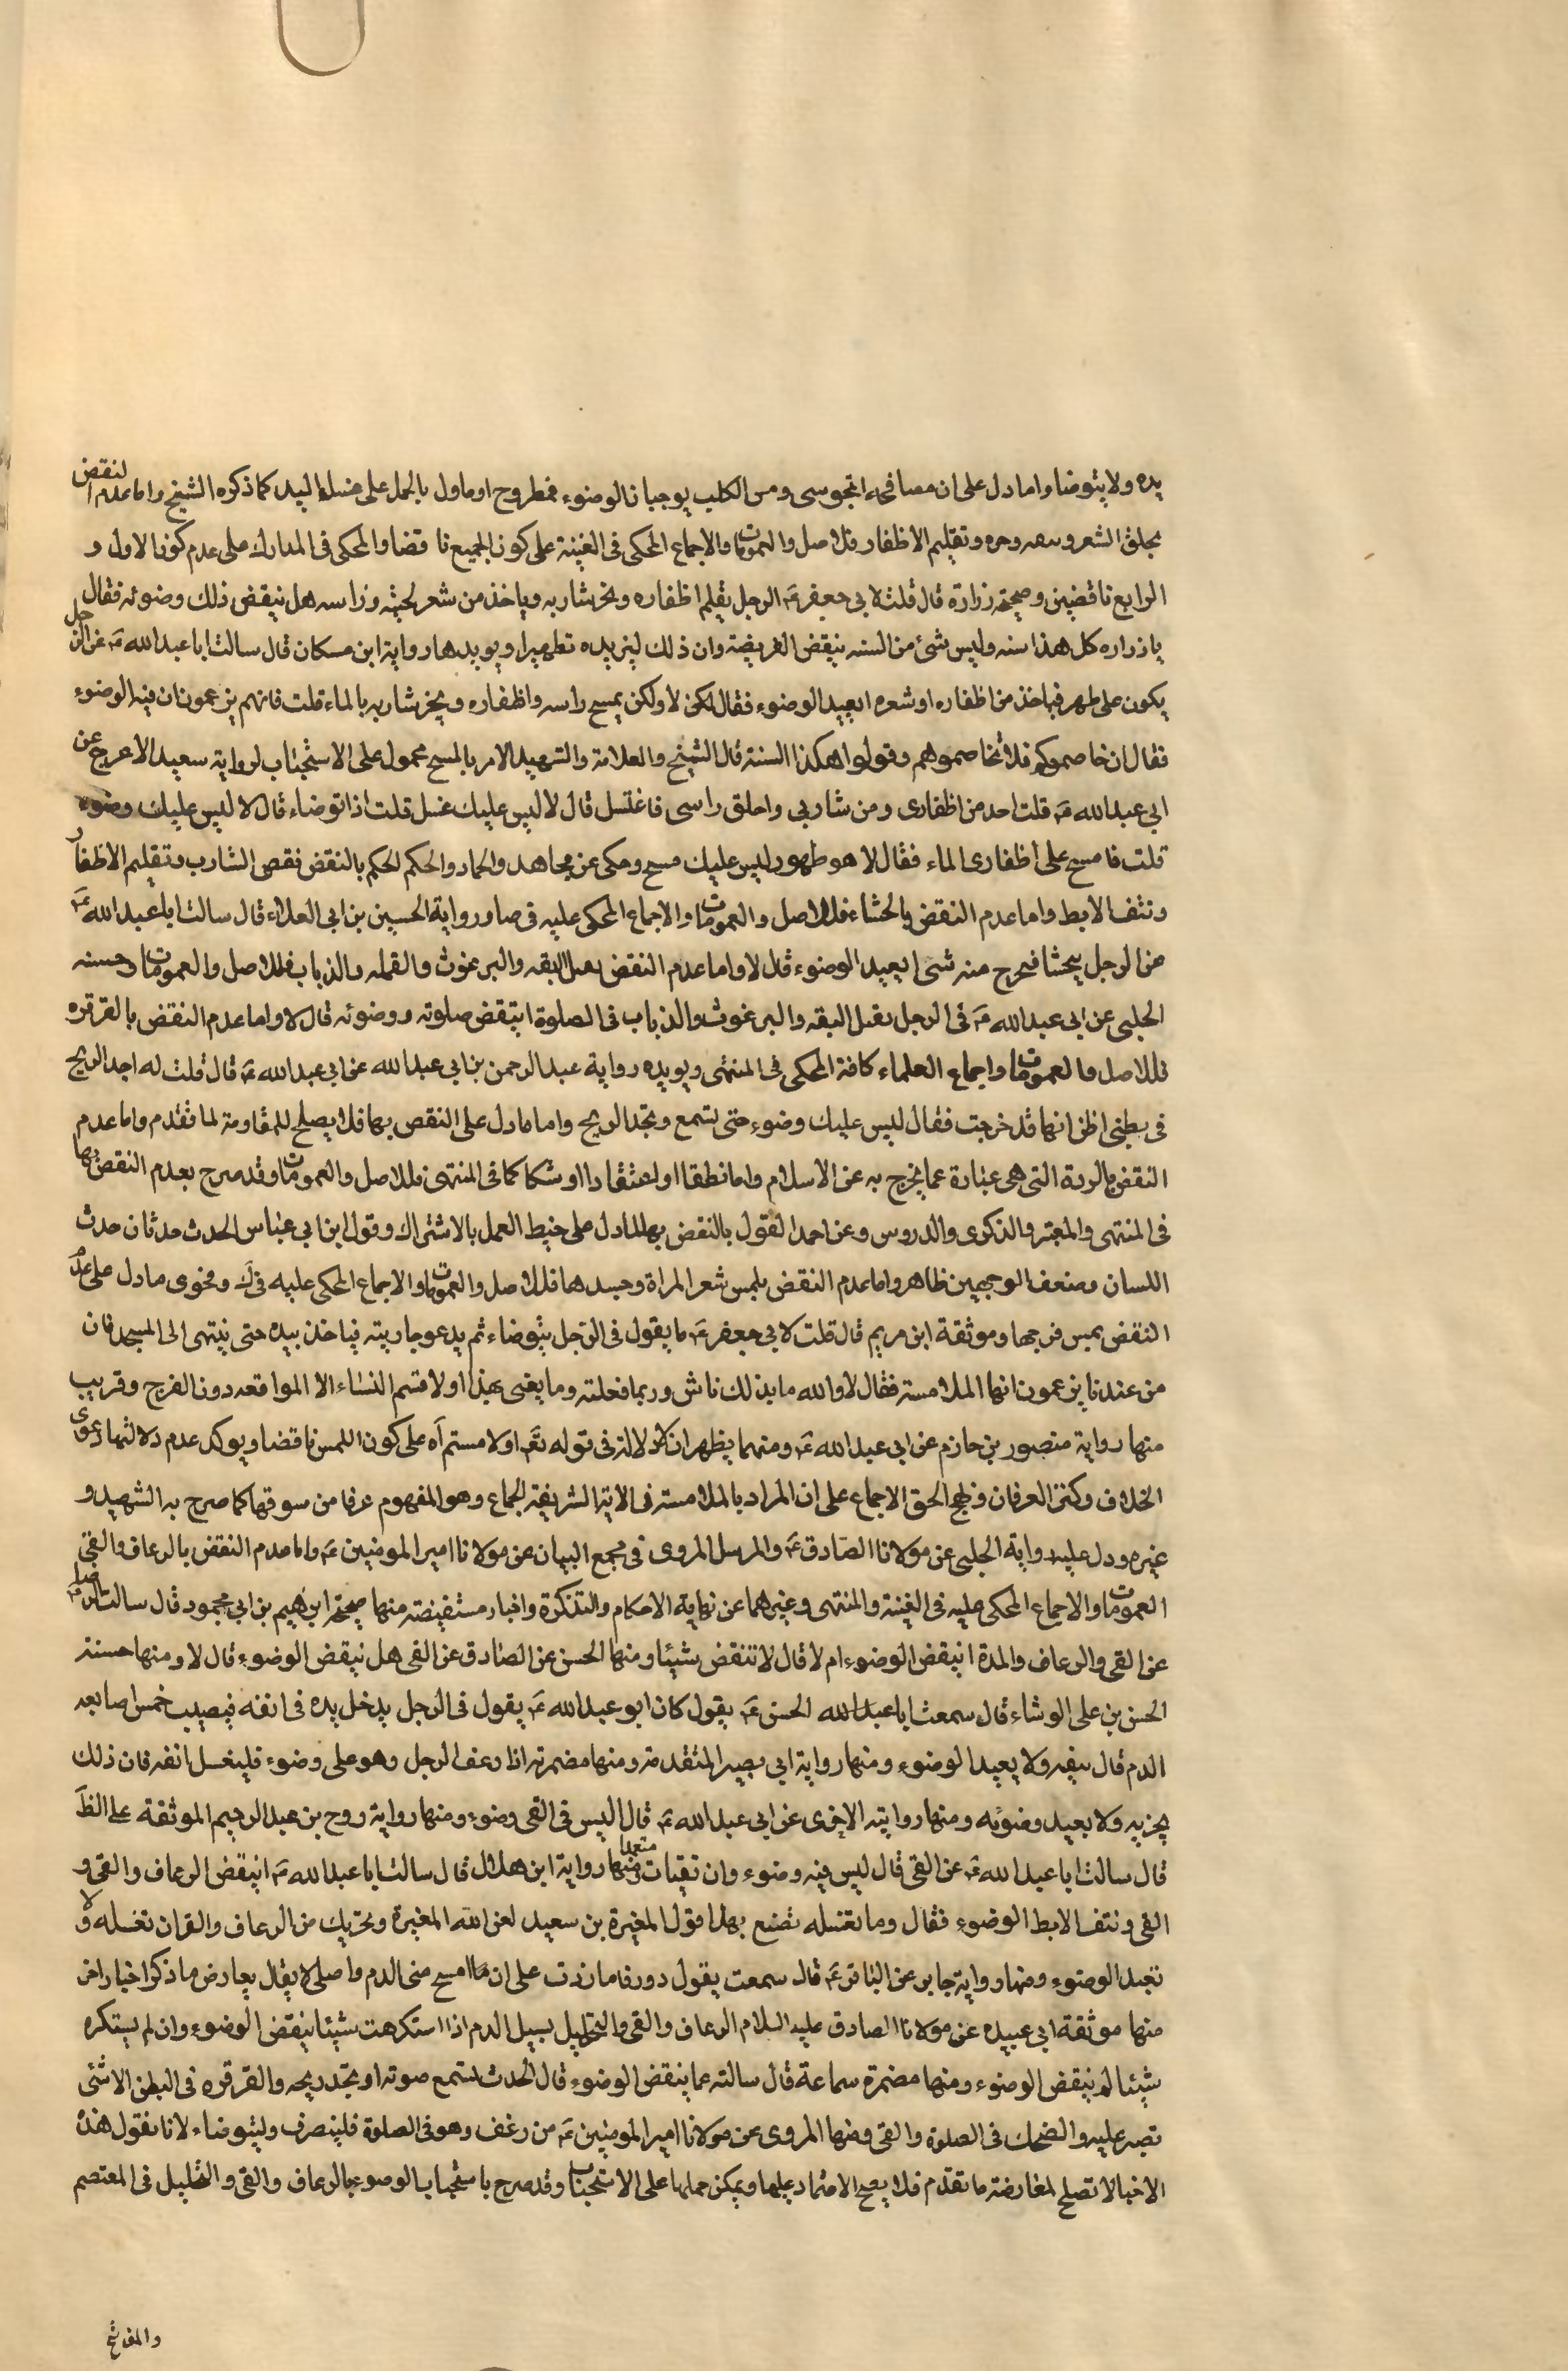 يده ولا يتوضا واما دل على ان مصافحة المجوسى ومس الكلب يوجبان الوضوء فمطروح او ماول بالحمل على غسل اليد كما ذكره الشيخ واما عدم النقض
بحلق الشعر وتقليم الاظفار فللاصل والعمومات والاجماع المحكى فى الغنية على كون الجميع ناقضا والمحكى فى المدارك على عدم كون الاول و
الرابع ناقضين وصحيحة زرارة قال قلت لابى جعفر ع الرجل يقلم اظفاره ويجز شاربه وياخذ من شعر لحيته وراسه هل ينقض ذلك وضوئه فقال
يا زراره كل هذا سنه وليس شئ من السنه ينقض الفريضة وان ذلك ليزيده تطهيرا ويويدها رواية ابن مسكان قال سالت ابا عبد الله ع عن الرجل
يكون على طهر فياخذ من اظفاره او شعره ايعيد الوضوء فقال لا ولكن يمسح راسه واظفاره ويجز شاربه بالماء قلت فانهم يزعمون ان فيه الوضوء
فقال ان خاصموكم فلا تخاصموهم وقولوا هكذا السنة قال الشيخ والعلامة والشهيد الامر بالمسح محمول على الاستحباب لرواية سعيد الاعرج عن
ابى عبد الله ع قلت اخذ من اظفارى ومن شاربى واحلق راسى فاغتسل قال لا ليس عليك غسل قلت اذا توضاء قال لا ليس عليك وضوء
قلت فامسح على اظفارى الماء فقال لا هو طهور ليس عليك مسح وحكى عن مجاهد والحماد والحكم الحكم بالنقض نقص الشارب وتقليم الاظفار
ونتف الابط واما عدم النقض بالحشاء فللاصل والعمومات والاجماع المحكى عليه فى صا ورواية الحسين بن ابى العلاء قال سالت ابا عبد الله ع
عن الرجل يتجشا فيخرج منه شئ ايعيد الوضوء قال لا واما عدم النقض بقتل البقه والبرغوث والقمله والذباب فللاصل والعمومات وحسنه
الحلبى عن ابى عبد الله ع فى الرجل يقتل البقه والبرغوث والذباب فى الصلوة اينقض صلوته ووضوئه قال لا واما عدم النقض بالقرقره
فللاصل والعمومات واجماع العلماء كافة المحكى فى المنتهى ويويده رواية عبد الرحمن بن ابى عبد الله عن ابى عبد الله ع قال قلت له اجد الريح
فى بطنى اظن انها قد خرجت فقال ليس عليك وضوء حتى تسمع وتجد الريح واما ما دل على النقض بها فلا يصلح للمقاومة لما تقدم واما عدم
النقض بالردة التى هى عبارة عما يخرج به عن الاسلام واما نطقا او اعتقادا او شكا كما فى المنتهى فللاصل والعمومات وقد صرح بعدم النقض بها
فى المنتهى والمعتبر والذكرى والدروس وعن احمد القول بالنقض بها لما دل على حبط العمل بالاشتراك وقول ابن ابى عباس الحدث حدثان حدث
اللسان وضعف الوجهين ظاهر واما عدم النقض بلمس شعر المراة وجسدها فللاصل والعمومات والاجماع المحكى عليه فى ك وفحوى ما دل على عدم
النقض بمس فرجها وموثقة ابن مريم قال قلت لابى جعفر ع ما يقول فى الرجل يتوضاء ثم يدعو جاريته فياخذ بيده حتى ينتهى الى المسجد فان
من عندنا يزعمون انها الملامسة فقال لا والله ما بذلك باس وربما فعلته وما يعنى بهذا اولامستم النساء الا المواقعه دون الفرج وقريب
منها رواية منصور بن حازم عن ابى عبد الله ع ومنهما يظهر ان لا دلالة فى قوله تع اولامستم اه على كون اللمس ناقضا ويوكد عدم دلالتها دعوى
الخلاف وكنز العرفان ونهج الحق الاجماع على ان المراد بالملامسة فى الاية الشريفة الجماع وهو المفهوم عرفا من سوقها كما صرح به الشهيد و
غيره ودل عليه رواية الحلبى عن مولانا الصادق ع والمرسل المروى فى مجمع البيان عن مولانا امير المومنين ع واما عدم النقض بالرعاف والقئ
العمومات والاجماع المحكى عليه فى الغنية والمنتهى وغيرهما عن نهاية الاحكام والتذكرة واخبار مستفيضة منها صحيحة ابرهيم بن ابى محمود قال سالت الرضا ع
عن القئ والرعاف والمدة اينقض الوضوء ام لا قال لا تنقض شيئا ومنها الحسن عن الصادق عن القئ هل ينقض الوضوء قال لا ومنها حسنة
الحسن بن على الوشاء قال سمعت ابا عبد الله الحسن ع يقول كان ابو عبد الله ع يقول فى الرجل يدخل يده فى انفه فيصيب خمس اصابعه
الدم قال ينقيه ولا يعيد الوضوء ومنها رواية ابى بصير المتقدمة ومنها مضمرته اذا رعف الرجل وهو على وضوء فليغسل انفه فان ذلك
يجزيه ولا يعيد وضوئه ومنها روايته الاخرى عن ابى عبد الله ع قال ليس فى القئ وضوء ومنها رواية روح بن عبد الرحيم الموثقة على الظ
قال سالت ابا عبد الله ع عن القئ قال ليس فيه وضوء وان تقيات متعمدا ومنها رواية ابن هلال قال سالت ابا عبد الله ع اينقض الرعاف والقئ و
القئ ونتف الابط الوضوء فقال وما تصنع بهذا قول المغيرة بن سعيد لعن الله المغيرة ويجزيك من الرعاف والقئ ان تغسله ولا
تعيد الوضوء ومنها رواية جابر عن الباقر ع قال سمعت يقول لو رعفت دورقا ما زدت على ان امسح منى الدم واصلى لا يقال يعارض ما ذكر اخبار اخر
منها موثقة ابى عبيده عن مولانا الصادق عليه السلام الرعاف والقئ والتخليل يسيل الدم اذا استكرهت شيئا ينقض الوضوء وان لم يستكره
شيئا لم ينقض الوضوء ومنها مضمرة سماعة قال سالته عما ينقض الوضوء قال الحدث تسمع صوته او تجد ريحه والقرقره فى البطن الا شئ
تصبر عليه والضحك فى الصلوة والقئ ومنها المروى عن مولانا امير المومنين ع من رعف وهو فى الصلوة فلينصرف وليتوضاء لانا نقول هذه
الاخبار لا تصلح لمعارضة ما تقدم فلا يصح الاعتماد عليها ويمكن حملها على الاستحباب وقد صرح باستحباب الوضوء بالرعاف والقئ والتخليل فى المعتصم